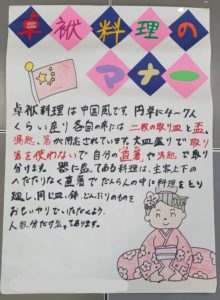 卓袱料理の
マナー
卓袱料理は中国風です。円卓に4〜7人
くらい座り各自の席には二枚の取り皿と盃、
湯匙、箸が用意されています。大皿盛りで取り
箸を使わないで自分の直箸や湯匙で取り
分けます。器に盛ってある料理は、主客上下の
へだたりなく直箸でだんらんの中に料理をとり
廻し、同じ皿、鉢、どんぶりのものを
おもいやりでいただくよう、
人数分だけ盛ってあります。